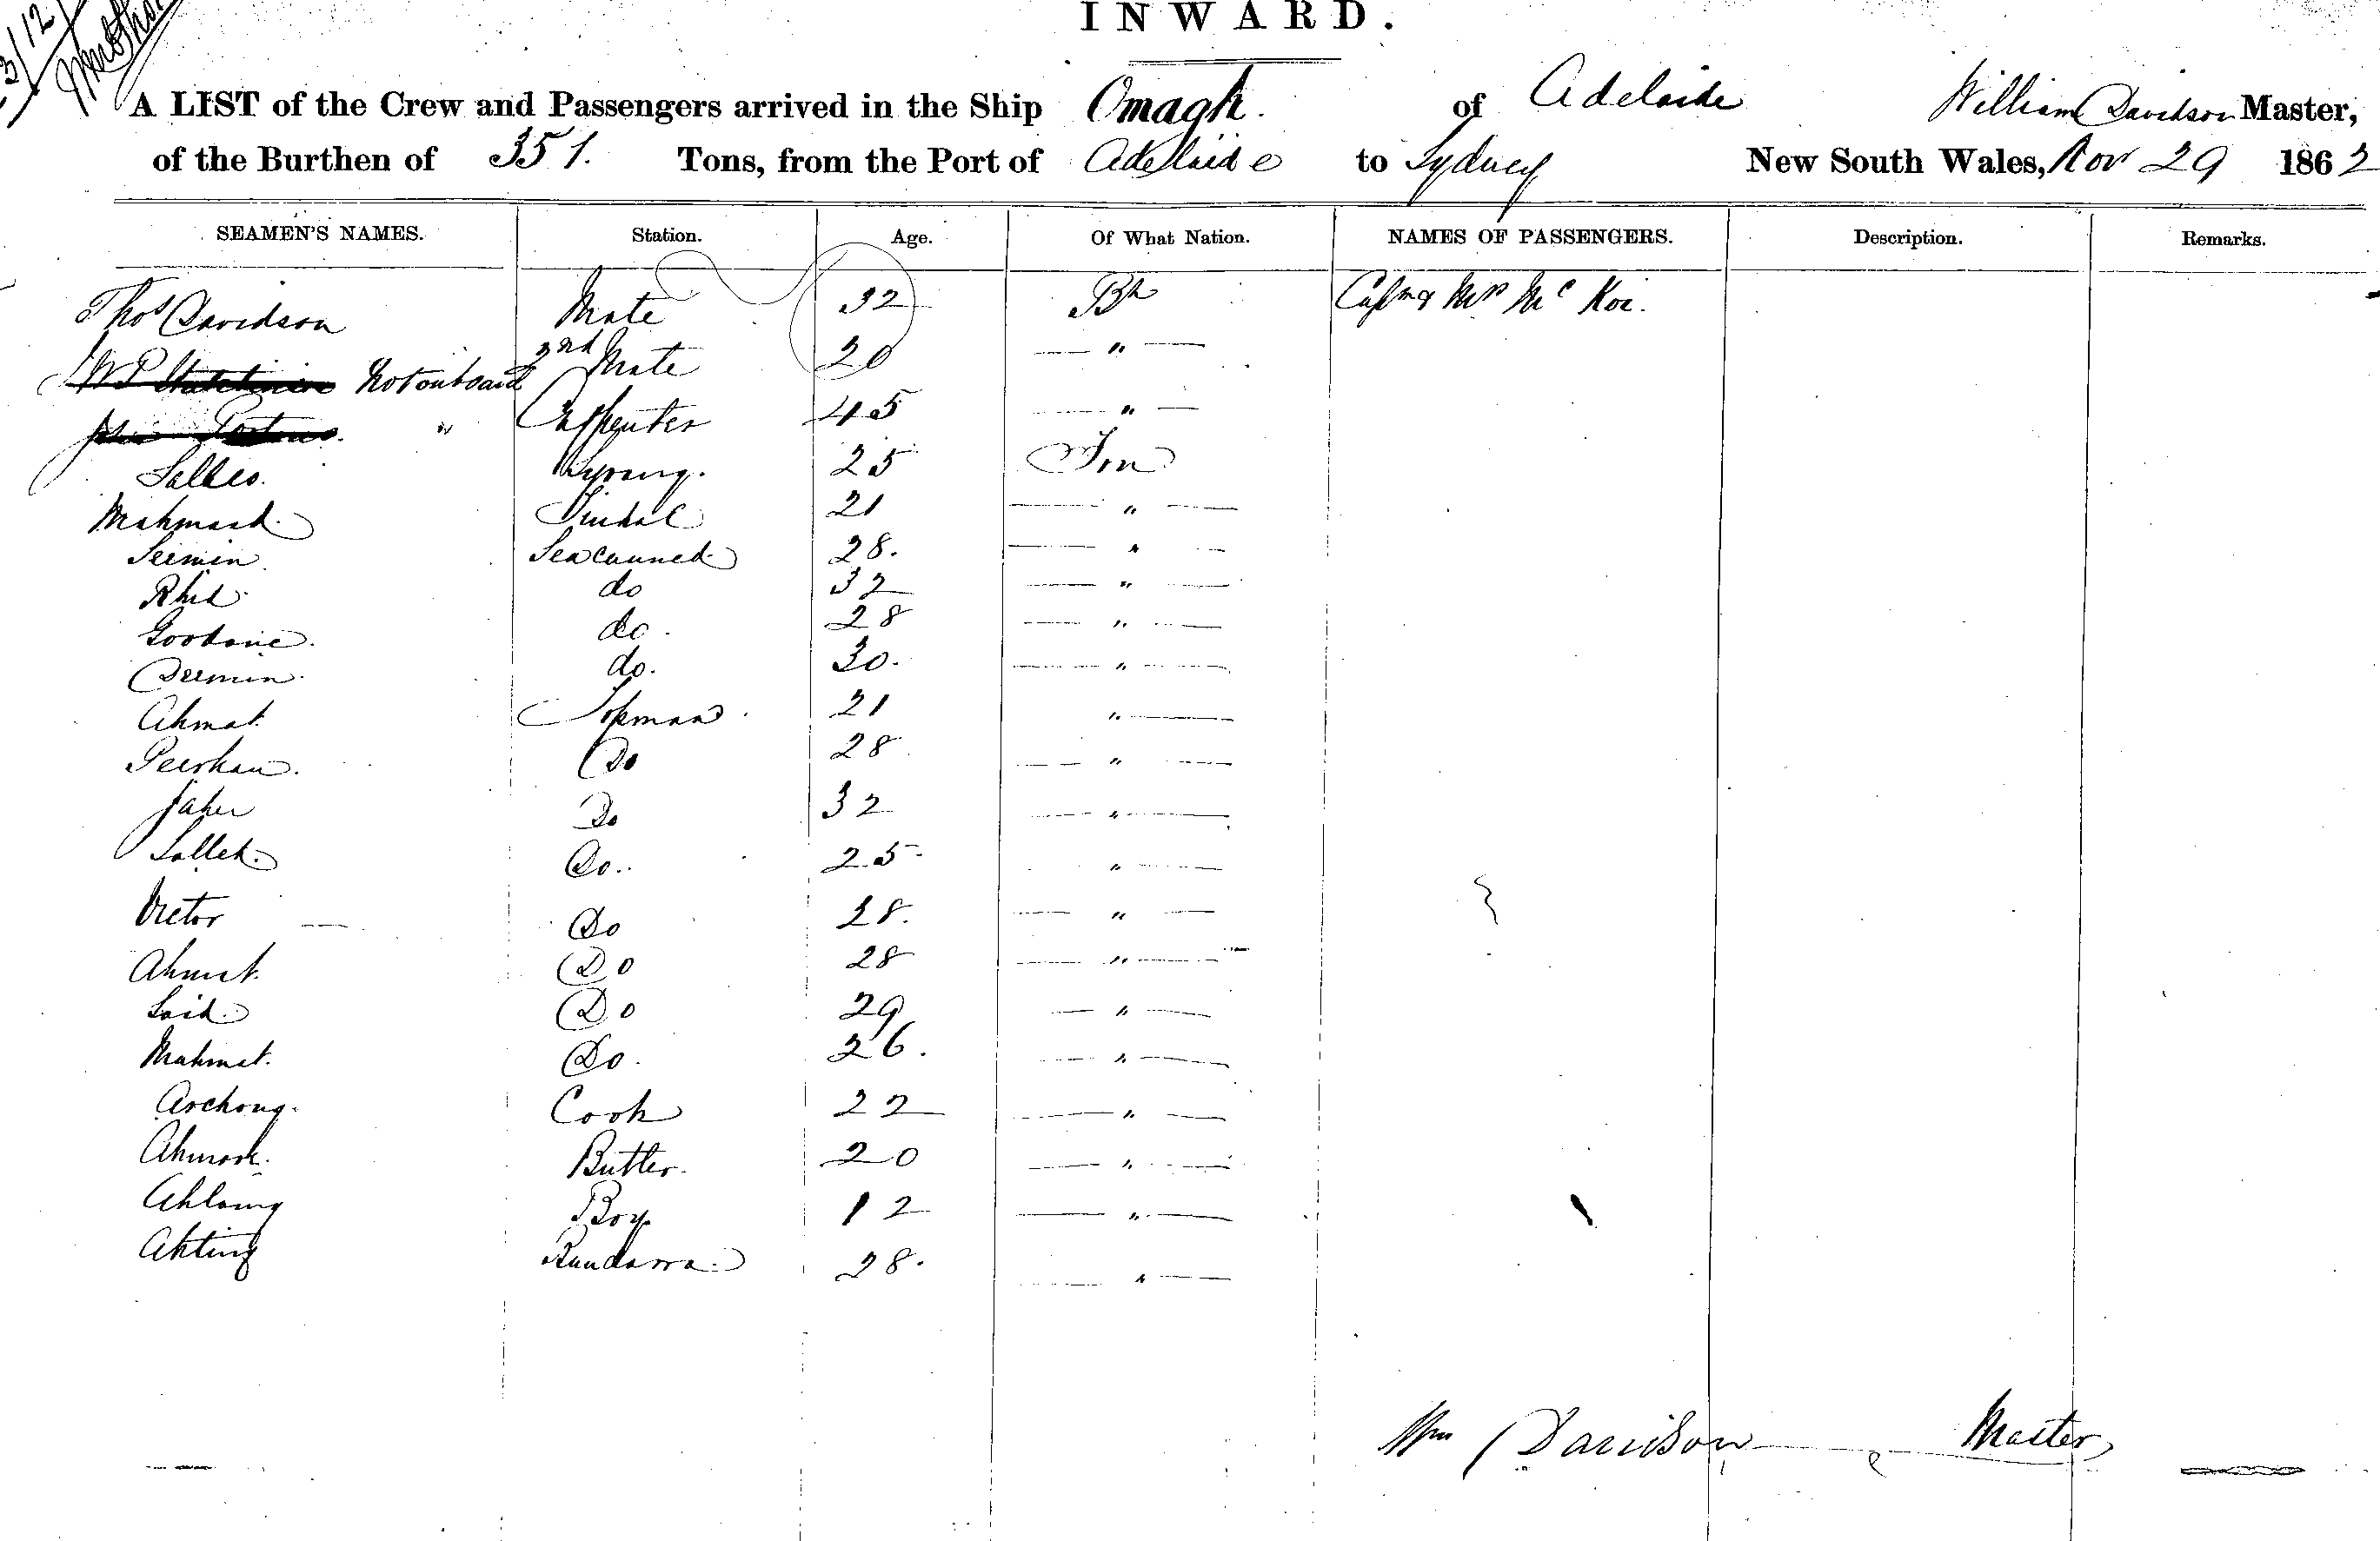 INWARD.
A LIST of the Crew and Passengers arrived in the Ship Omagh. of Adelaide William Davidson Master,
of the Burthen of 351. Tons, from the Port of Adelaide to Sydney New South Wales, Nov 29 1862
SEAMEN'S NAMES. Station. Age. Of What Nation. NAMES OF PASSENGERS. Description. Remarks.
Thos Davidson Mate 32 Bh Captn & Mrs Mc Koi.
Not onboard 2nd Mate 20 — " —
" Carpenter 45 — " —
25 Fon
21 — " —
Seemin Seacunned 28. — " —
do 32 — " —
do. 28 — " —
Deemin. do. 30. — " —
Ahmat. Topman 21 " —
Peerhan. Do 28 — " —
Do 32 — " —
Salleh. Do. 25 " —
Victor Do 28. — " —
Ahmet. Do 28 — " —
Said. Do 29 — " —
Mahmet. Do. 26. — " —
Archong. Cook 22 — " —
Butler. 20 — " —
Boy 12 — " —
Ahting 28. — " —
Wm Davidson Master